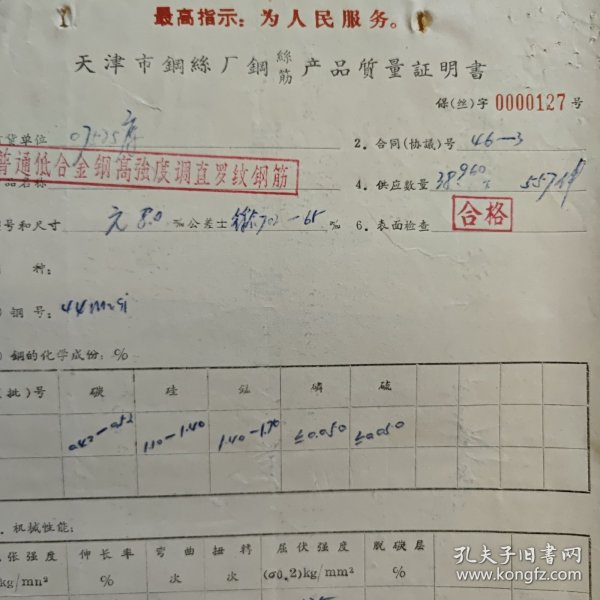 最高指示：为人民服务。
天津市鋼絲厂鋼絲筋产品质量証明書
保(丝)字 0000127 号
货单位 07535库 2. 合同(协議)号 46-3
普通低合金钢高强度调直罗纹钢筋
品名称 4. 供应数量 38.960 557件
号和尺寸 元8.0 ‰公差士 702-65 ‰ 6. 表面检查 合格
种：
钢号：44Mn2Si
鋼的化学成份：%
批)号 碳 硅 锰 磷 硫
0.42-0.52 1.10-1.40 1.40-1.70 ≤0.050 ≤0.050
. 机械性能：
张强度 伸长率 弯曲 扭转 屈伏强度 脱碳层
kg/mn² % 次 次 (σ0.2)kg/mm² %
孔夫子旧书网
www.kongfz.com